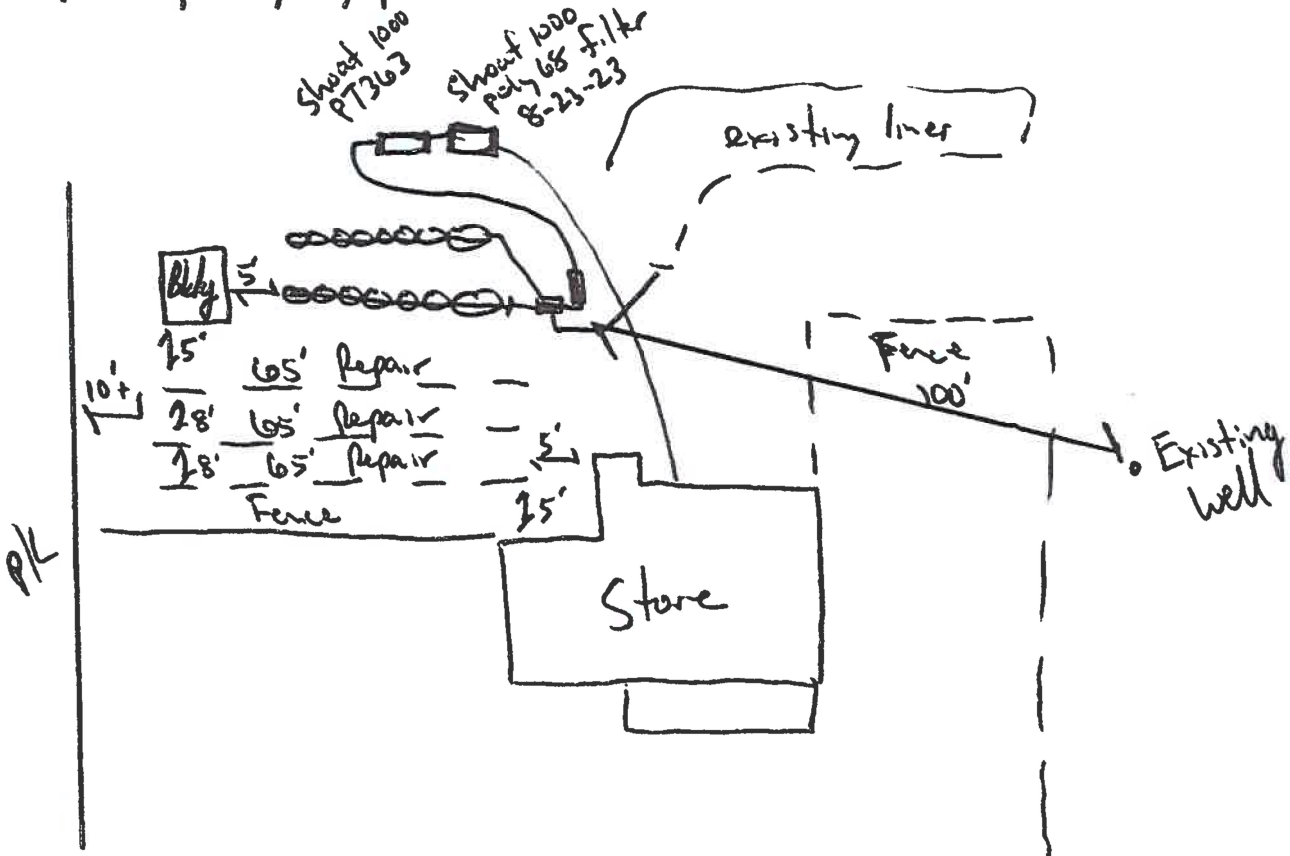 Shoaf 1000
PT363
Shoaf 1000
poly 68 filter
8-23-23
existing lines
Bldg
5'
15'
65' Repair
10'+
28' 65' Repair
28' 65' Repair
5'
Fence
15'
Fence
100'
Existing
Well
P/L
Store